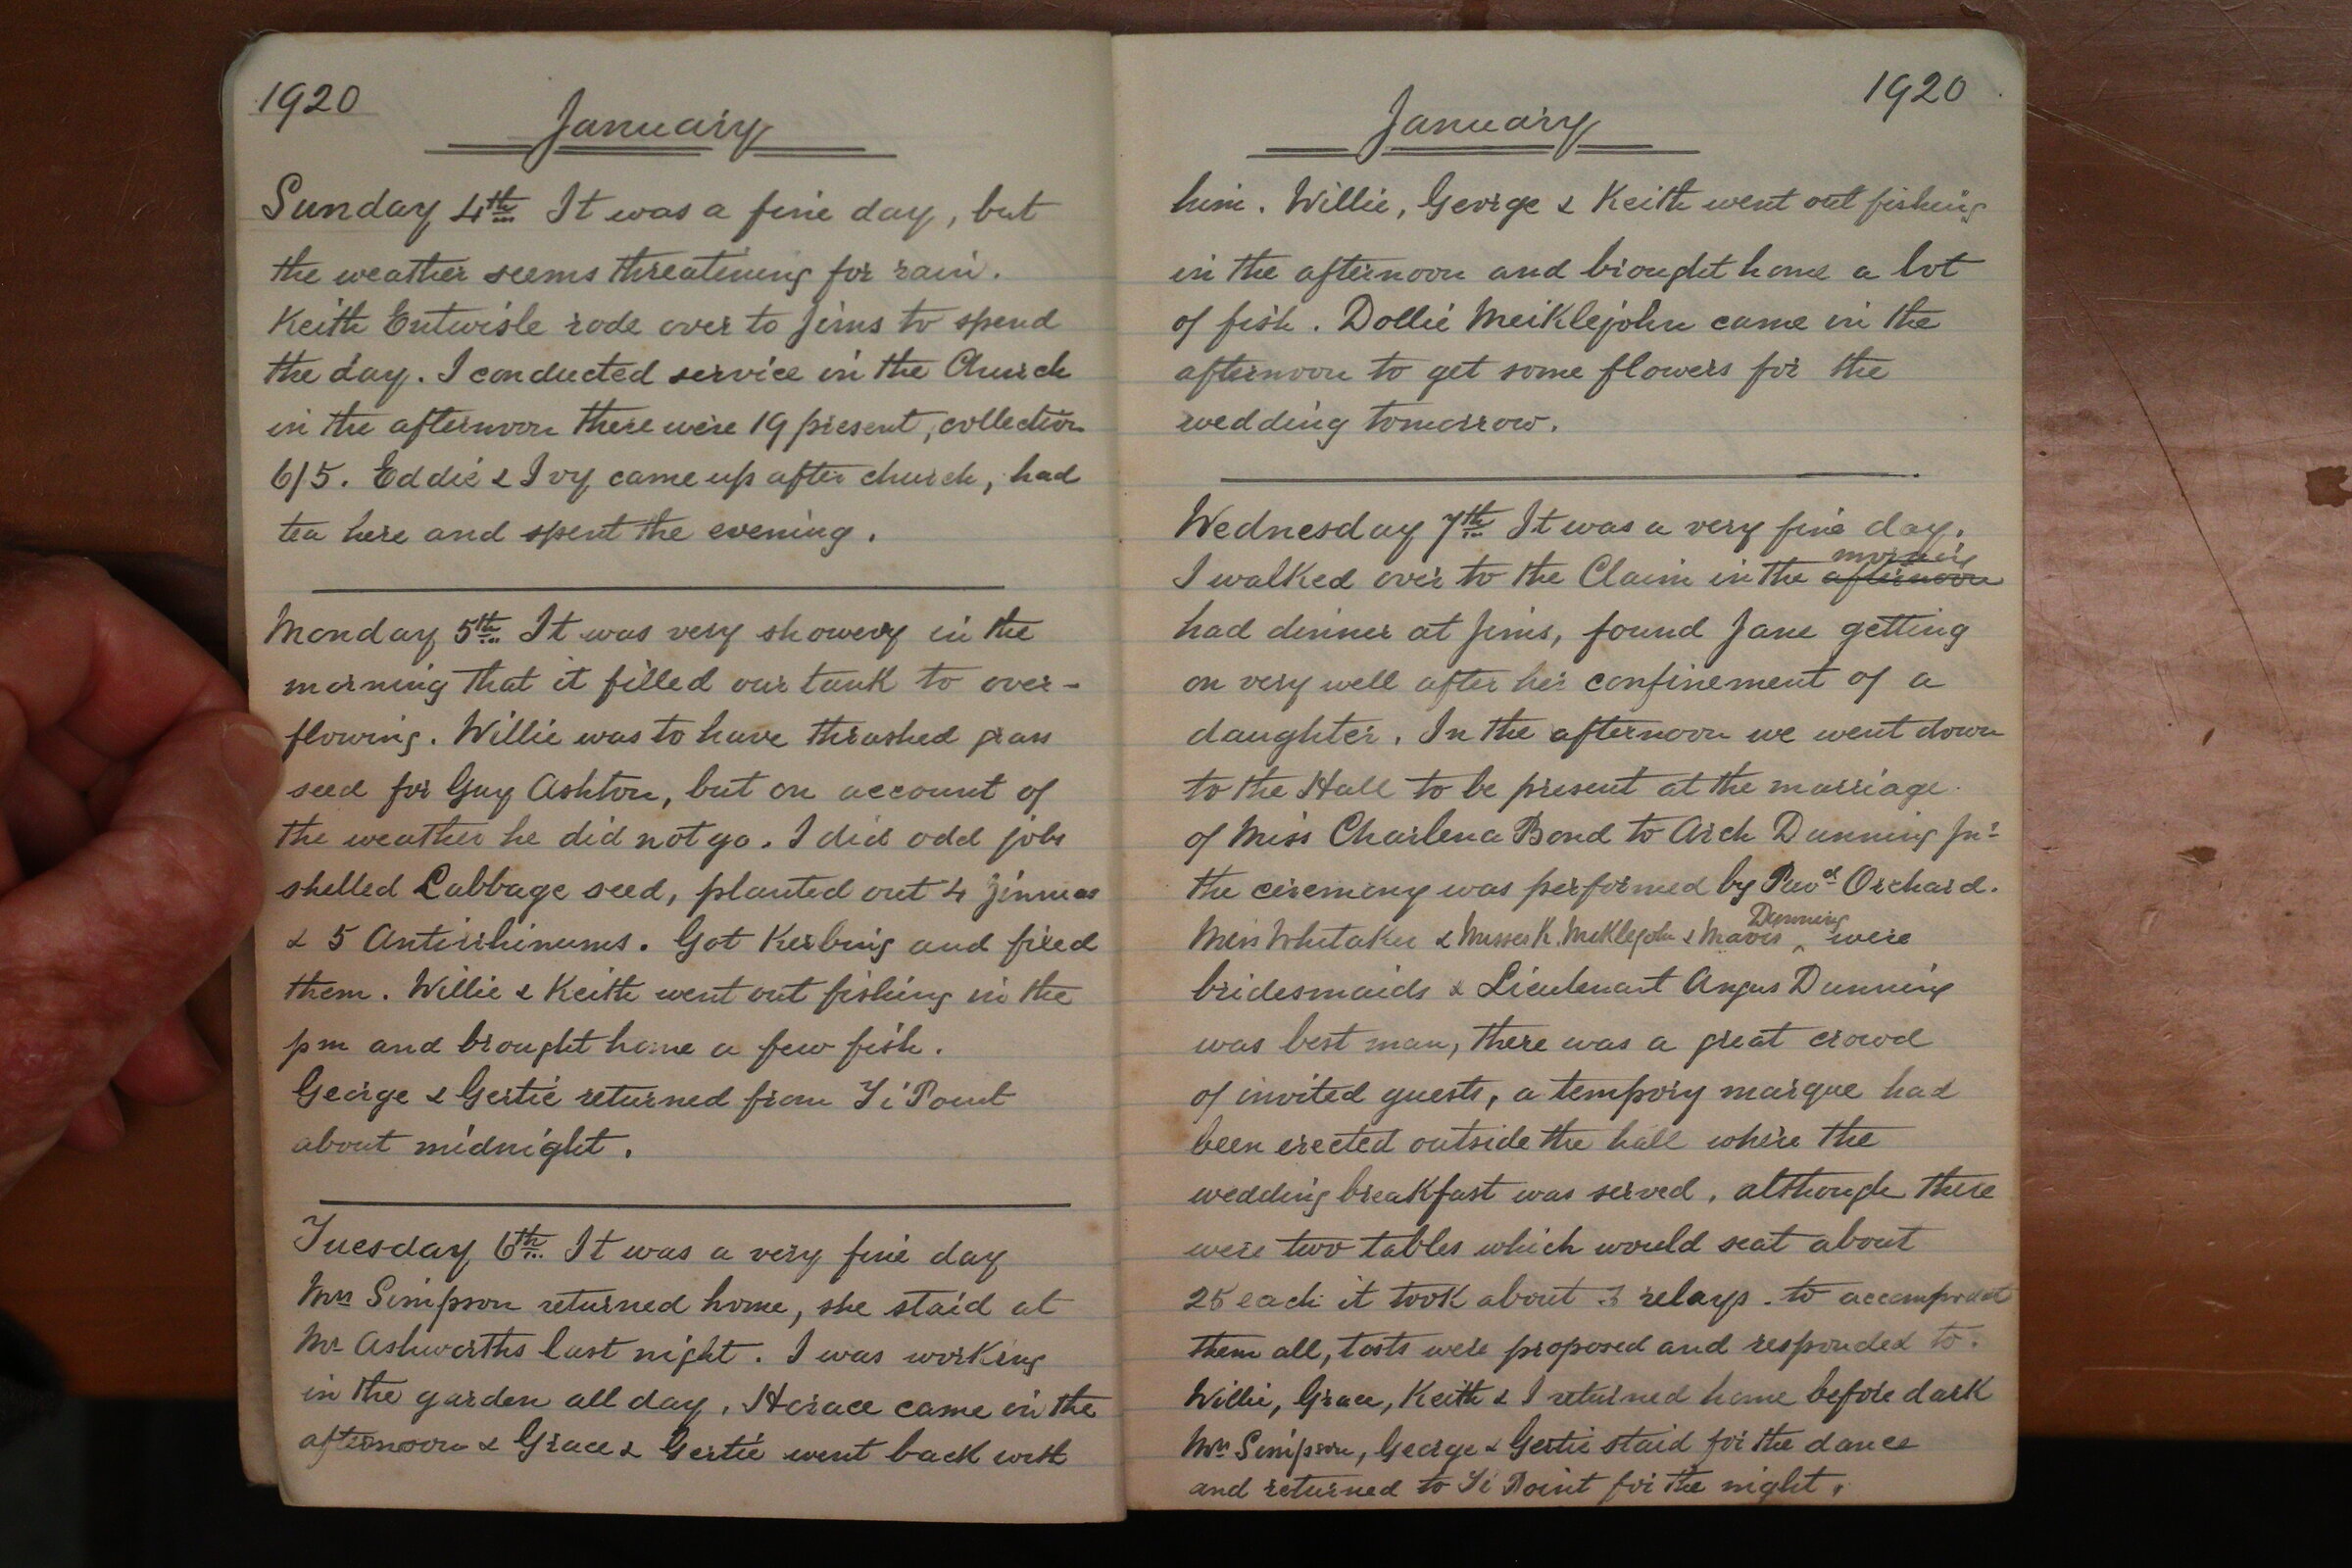 1920
January
Sunday 4th It was a fine day, but
the weather seems threatening for rain.
Keith Entwisle rode over to Jims to spend
the day. I conducted service in the Church
in the afternoon there were 19 present, collection
6/5. Eddie & Ivy came up after church, had
tea here and spent the evening.
Monday 5th It was very showery in the
morning that it filled our tank to over-
flowing. Willie was to have thrashed grass
seed for Guy Ashton, but on account of
the weather he did not go. I did odd jobs
shelled Cabbage seed, planted out 4 Zinnias
& 5 Antirrhinums. Got Kerbing and fixed
them. Willie & Keith went out fishing in the
pm and brought home a few fish.
George & Gertie returned from Ti Point
about midnight.
Tuesday 6th It was a very fine day
Mrs Simpson returned home, she staid at
Mr Ashworths last night. I was working
in the garden all day. Horace came in the
afternoon & Grace & Gertie went back with
1920
January
him. Willie, George & Keith went out fishing
in the afternoon and brought home a lot
of fish. Dollie Meiklejohn came in the
afternoon to get some flowers for the
wedding tomorrow.
Wednesday 7th It was a very fine day.
morning
I walked over to the Claim in the afternoon
had dinner at Jims, found Jane getting
on very well after her confinement of a
daughter. In the afternoon we went down
to the Hall to be present at the marriage
of Miss Charlena Bond to Arch Dunning Jnr
the ceremony was performed by Orchard.
Dunning
Miss Whitaker & Misses K. Meiklejohn & Mavis ^ were
bridesmaids & Lieutenant Angus Dunning
was best man, there was a great crowd
of invited guests, a tempory marque had
been erected outside the hall where the
wedding breakfast was served, although there
were two tables which would seat about
25 each it took about relays. to
them all, tosts were proposed and responded to.
Willie, Grace, Keith & I returned home before dark
Mrs Simpson, George & Gertie staid for the dance
and returned to Ti Point for the night.